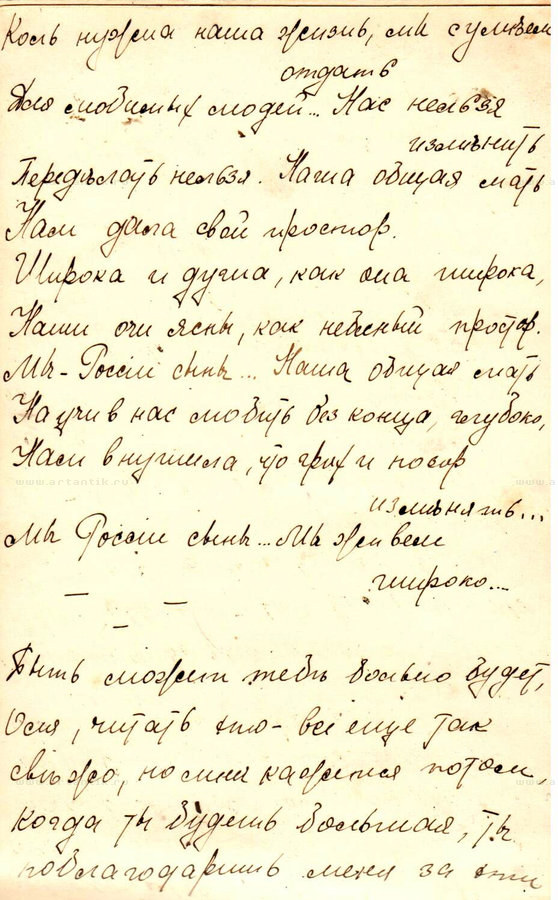 Коль нужна наша жизнь, мы сумѣем
отдать
Для любимых людей... Нас нельзя
измѣнить
Передѣлать нельзя. Наша общая мать
Нам дала свой простор.
Широка и душа, как она широка,
Наши очи ясны, как небесный простор.
Мы - Россіи сыны... Наша общая мать
Научив нас любить без конца, глубоко,
Нам внушила, что грѣх и позор
www.artantik.ru
измѣнять...
Мы Россіи сыны... Мы живем
широко...
Быть может тебѣ больно будет,
Оля, читать это - всё еще так
свѣжо, но мнѣ кажется потом,
когда ты будешь большая, ты
поблагодаришь меня за эти